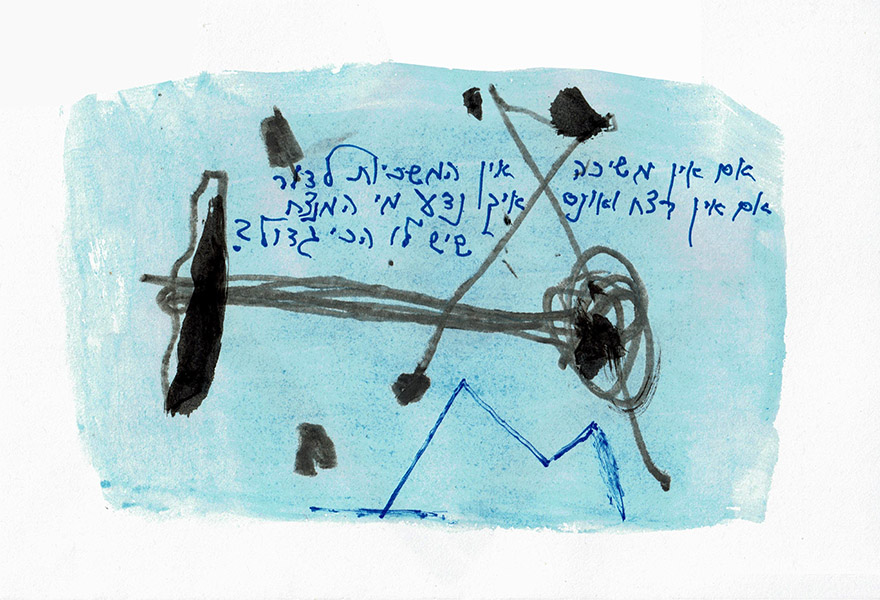 אם אין משיכה אין המשכיות לצער
אם אין רצח ואונס איך נדע מי המנצח
שיש לו הכי גדול?